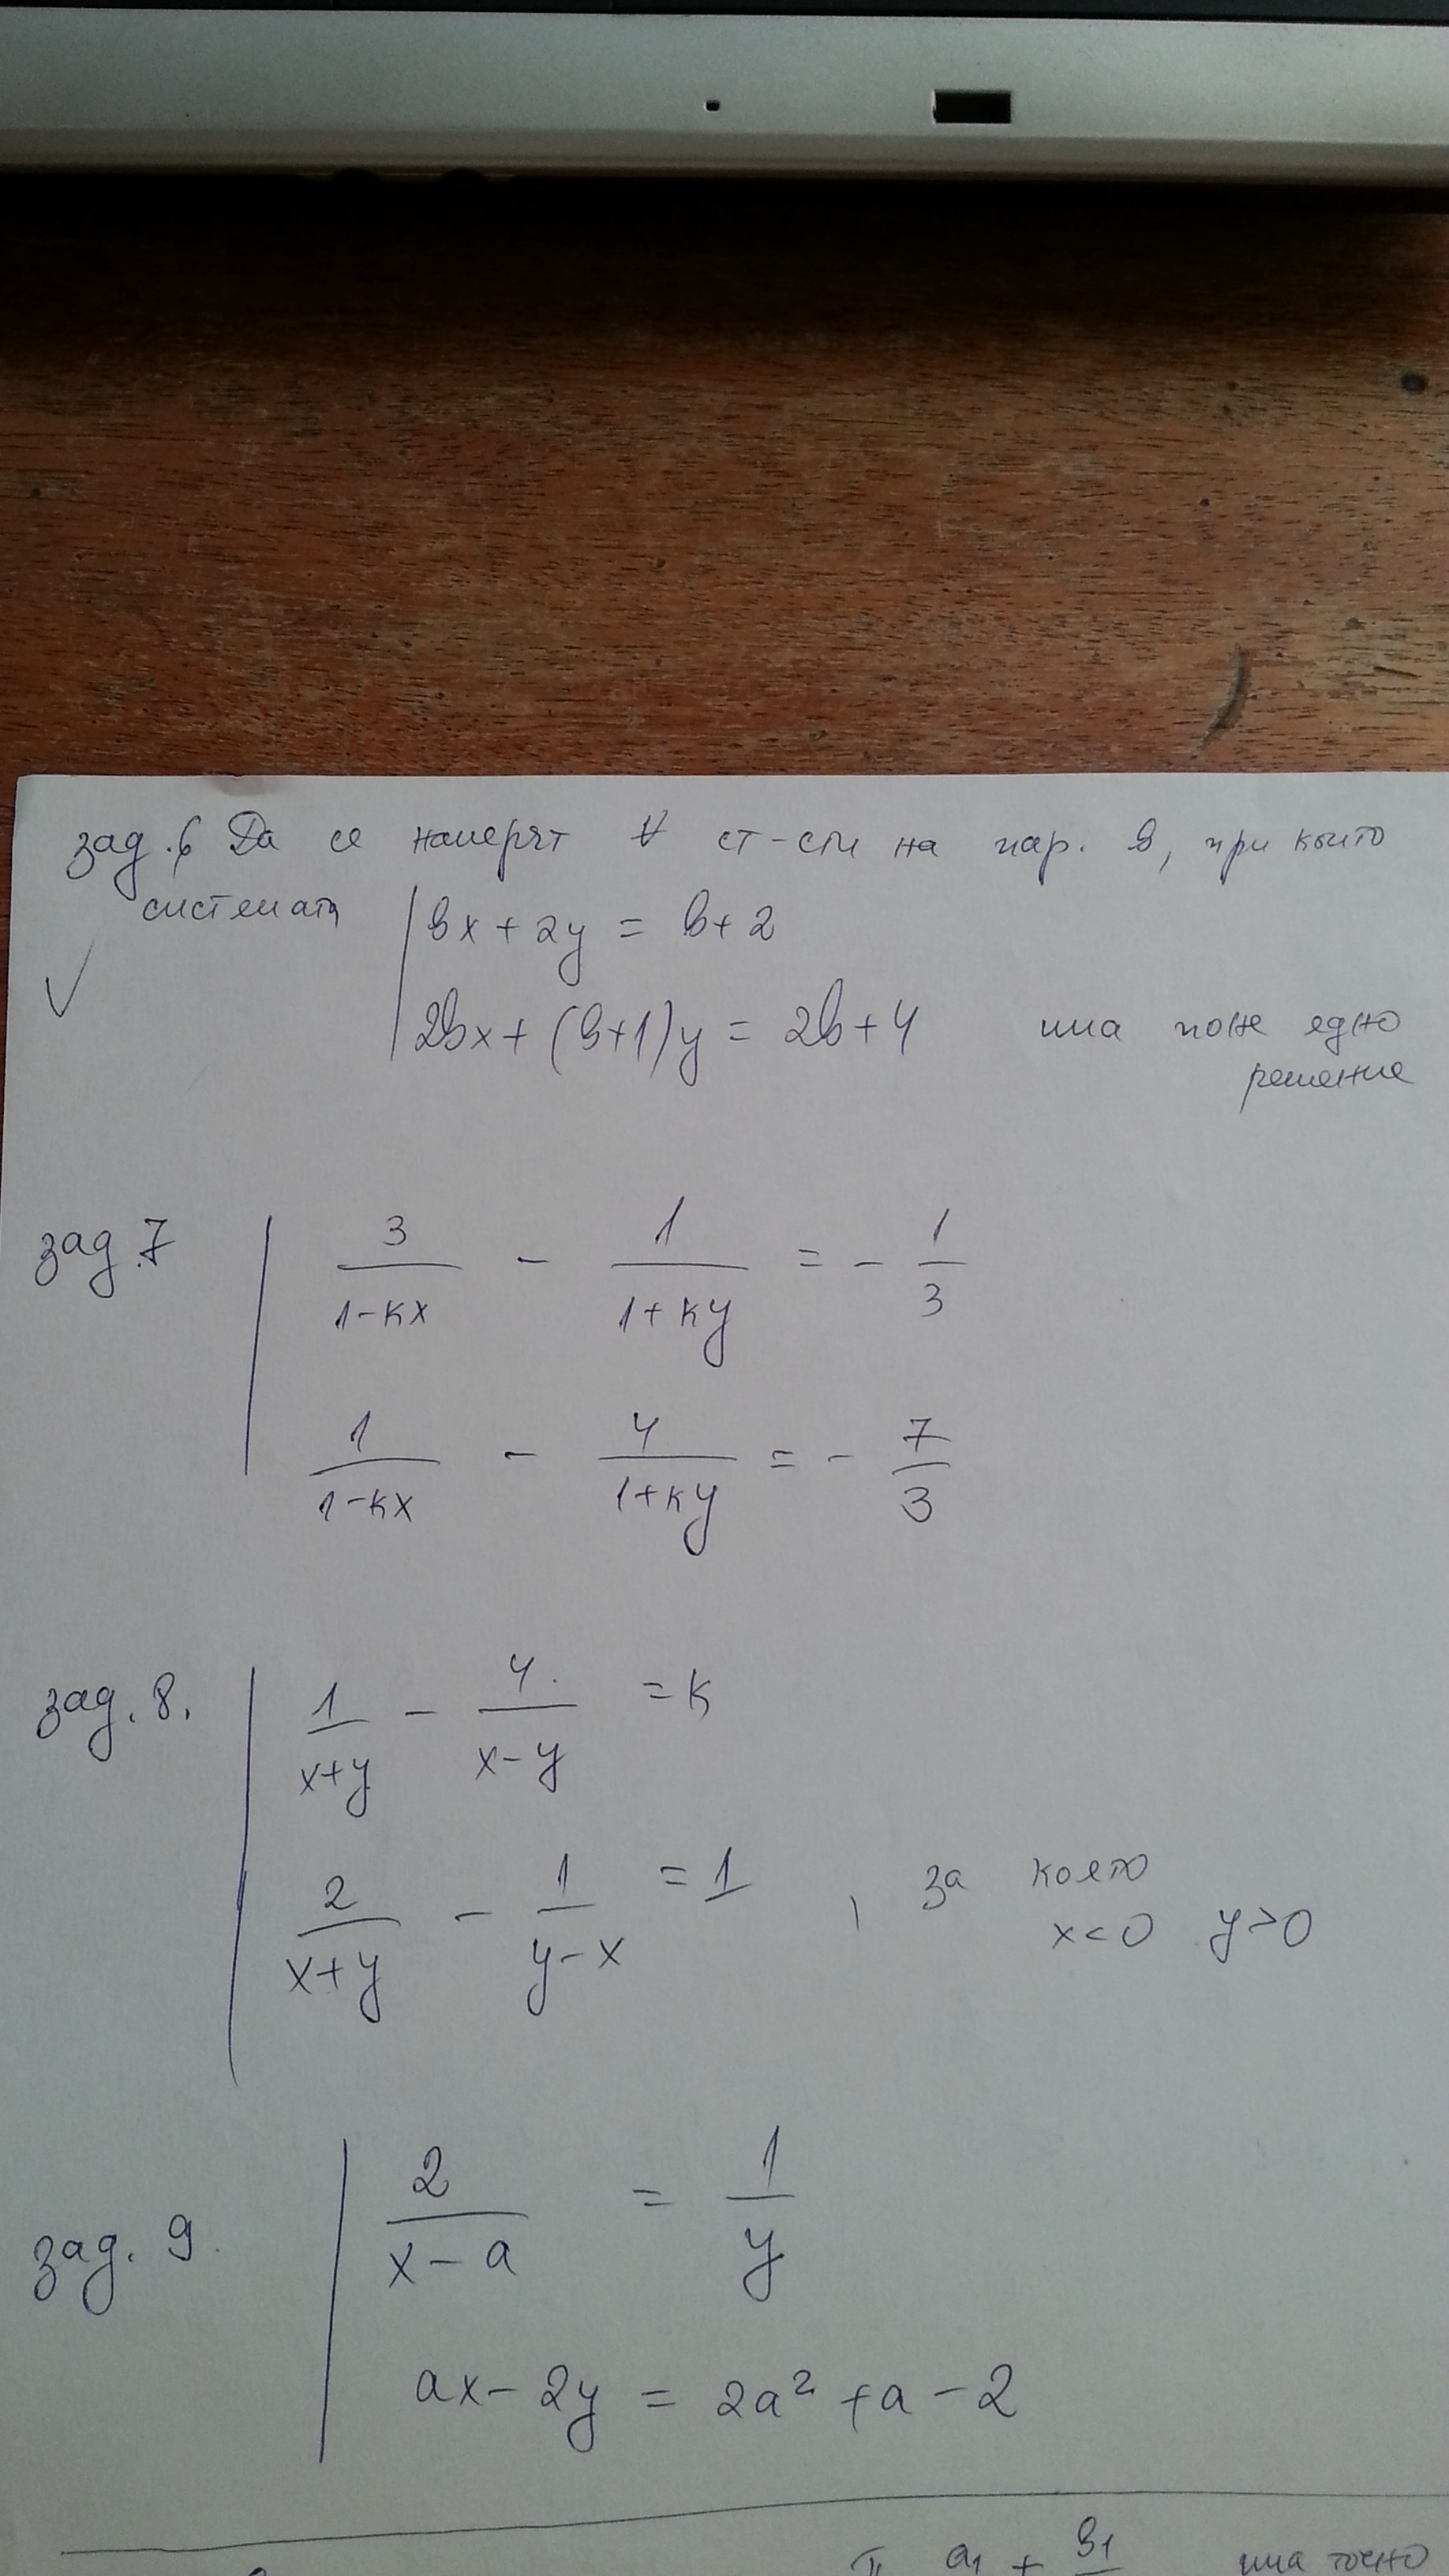 зад. 6 Да се намерят ∀ ст-сти на пар. в, при които
системата | вx + 2y = в + 2
2вx + (в+1)y = 2в + 4 има поне едно
решение
зад. 7 | 3/(1-кx) - 1/(1+кy) = - 1/3
1/(1-кx) - 4/(1+кy) = - 7/3
зад. 8. | 1/(x+y) - 4/(x-y) = к
2/(x+y) - 1/(y-x) = 1, за която
x<0 y>0
зад. 9. | 2/(x-a) = 1/y
ax - 2y = 2a² + a - 2
a₁ ; в₁ има точно